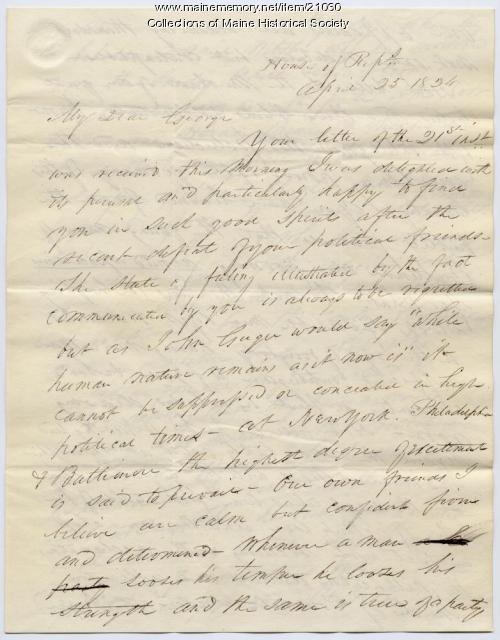 www.mainememory.net/item/21030
Collections of Maine Historical Society
House of Repts
April 25 1834
My Dear George
Your letter of the 21st inst
was received this Morning I was delighted with
its perusal and particularly happy to find
you in such good spirits after the
recent defeat of your political friends
The state of feeling illustrated by the fact
communicated by you is always to be regretted
but as John would say "while
human nature remains as it now is" it
cannot be suppressed or concealed in high
political times - at New York. Philadelphia
& Balltimore the highest degree of excitement
is said to prevail - Our own friends I
believe are calm but confident firm
and determined - Whenever a man
party looses his temper he looses his
strength and the same is true of a party